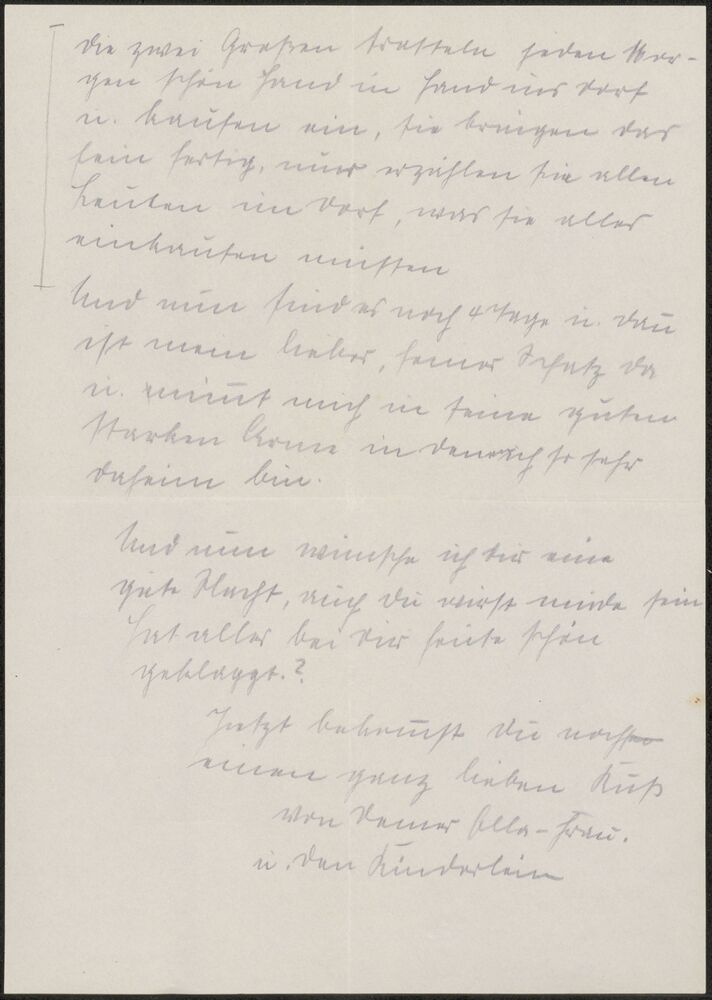 Die zwei Großen trotteln jeden Mor-
gen schön Hand in Hand ins Dorf
u. kaufen ein, sie bringen das
fein fertig, nur erzählen sie allen
Leuten im Dorf, was sie alles
einkaufen müssen
Und nun sind es noch 4 Tage u. dan̄
ist mein lieber, ferner Schatz da
u. nim̄t mich in seine guten
starken Arme in denen ich so sehr
daheim bin.
Und nun wünsche ich dir eine
gute Nacht, auch Du wirst müde sein
hat alles bei Dir heute schön
geklappt.?
Jetzt bekom̄st Du noch
einen ganz lieben Kuß
von Deiner Olla-Frau.
u. den Kinderlein